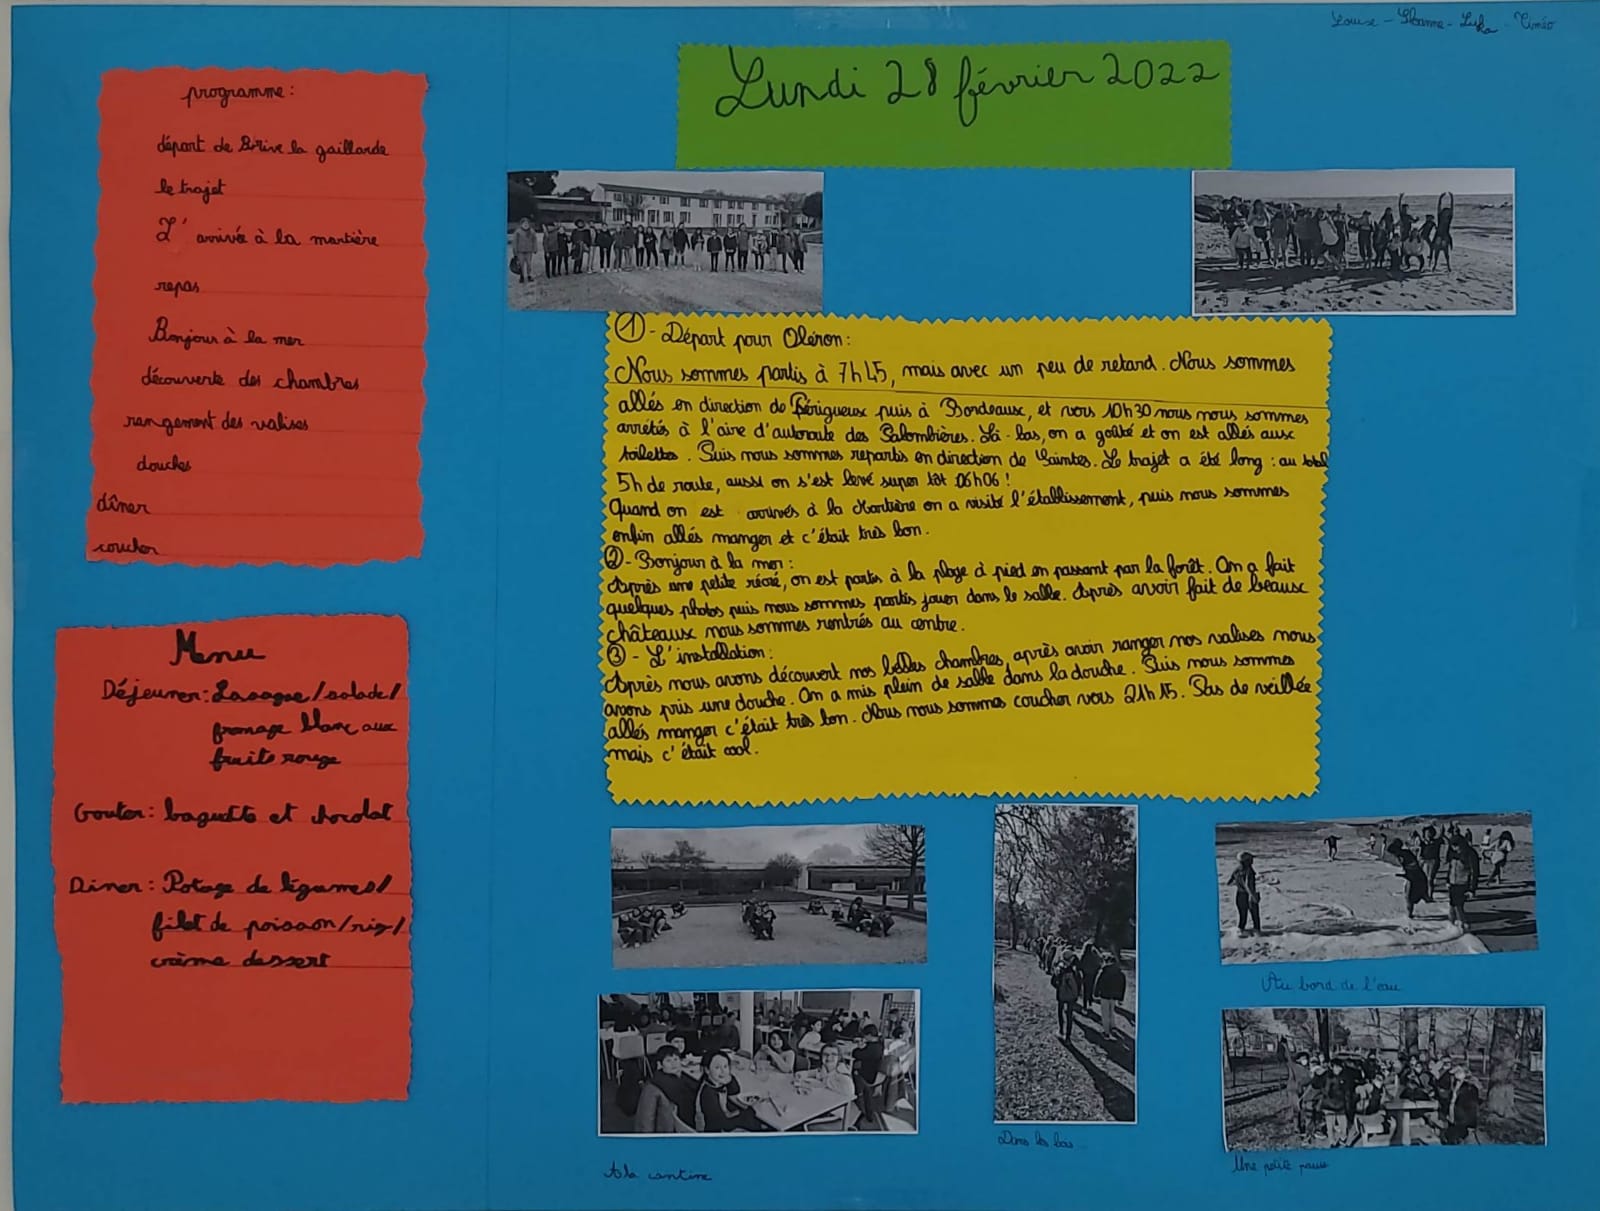 Louise - Lhanna - Luka - Timéo
Lundi 28 février 2022
programme :
départ de Brive la gaillarde
le trajet
L'arrivée à la martière
repas
Bonjour à la mer
découverte des chambres
rangement des valises
douches
dîner
coucher
Menu
Déjeuner : Lasagne / salade /
fromage blanc aux
fruits rouge
Gouter : baguette et chocolat
Diner : Potage de légumes /
filet de poisson / riz /
crème dessert
① - Départ pour Oléron :
Nous sommes partis à 7h45, mais avec un peu de retard. Nous sommes
allés en direction de Périgueux puis à Bordeaux, et vers 10h30 nous nous sommes
arrêtés à l'aire d'autoroute des Palombières. Là-bas, on a goûté et on est allés aux
toilettes. Puis nous sommes repartis en direction de Saintes. Le trajet a été long : au total
5h de route, aussi on s'est levé super tôt 06h06 !
Quand on est arrivés à la Martière on a visité l'établissement, puis nous sommes
enfin allés manger et c'était très bon.
② - Bonjour à la mer :
Après une petite récré, on est partis à la plage à pied en passant par la forêt. On a fait
quelques photos puis nous sommes partis jouer dans le salle. Après avoir fait de beaux
châteaux nous sommes rentrés au centre.
③ - L'installation :
Après nous avons découvert nos belles chambres, après avoir ranger nos valises nous
avons pris une douche. On a mis plein de salle dans la douche. Puis nous sommes
allés manger c'était très bon. Nous nous sommes coucher vers 21h15. Pas de veillée
mais c'était cool.
Au bord de l'eau
Dans les bois
A la cantine
Une petite pause